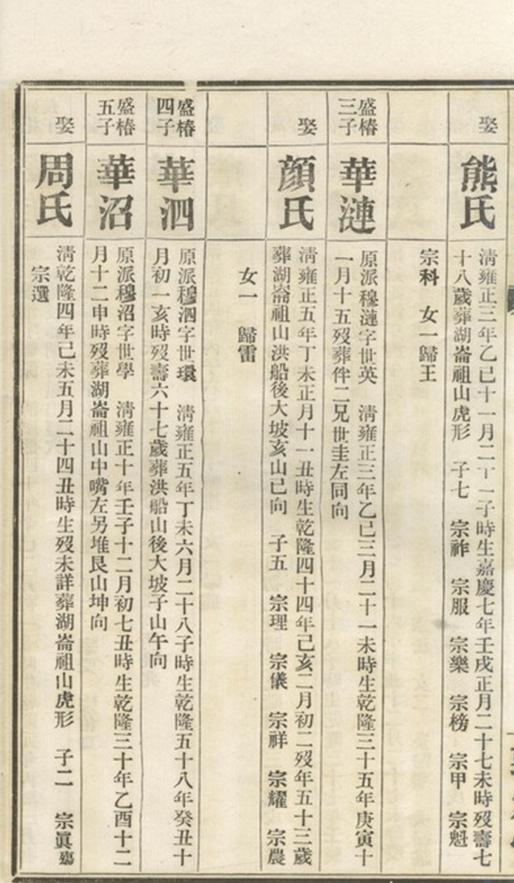 娶
熊氏
清雍正三年乙巳十一月二十一子時生嘉慶七年壬戌正月二十七未時歿壽七
十八歲葬湖崙祖山虎形 子七 宗祚 宗服 宗樂 宗榜 宗甲 宗魁
宗科 女一歸王
盛椿
三子
華漣
原派穆漣字世英 清雍正三年乙巳三月二十一未時生乾隆三十五年庚寅十
一月十五歿葬伴二兄世圭左同向
娶
顏氏
清雍正五年丁未正月十一丑時生乾隆四十四年己亥二月初二歿年五十三歲
葬湖崙祖山洪船後大坡亥山巳向 子五 宗理 宗儀 宗祥 宗耀 宗農
女一 歸雷
盛椿
四子
華泗
原派穆泗字世環 清雍正五年丁未六月二十八子時生乾隆五十八年癸丑十
月初一亥時歿壽六十七歲葬洪船山後大坡子山午向
盛椿
五子
華沼
原派穆沼字世學 清雍正十年壬子十二月初七丑時生乾隆三十年乙酉十二
月十二申時歿葬湖崙祖山中嘴左另堆艮山坤向
娶
周氏
清乾隆四年己未五月二十四丑時生歿未詳葬湖崙祖山虎形 子二 宗眞
宗選